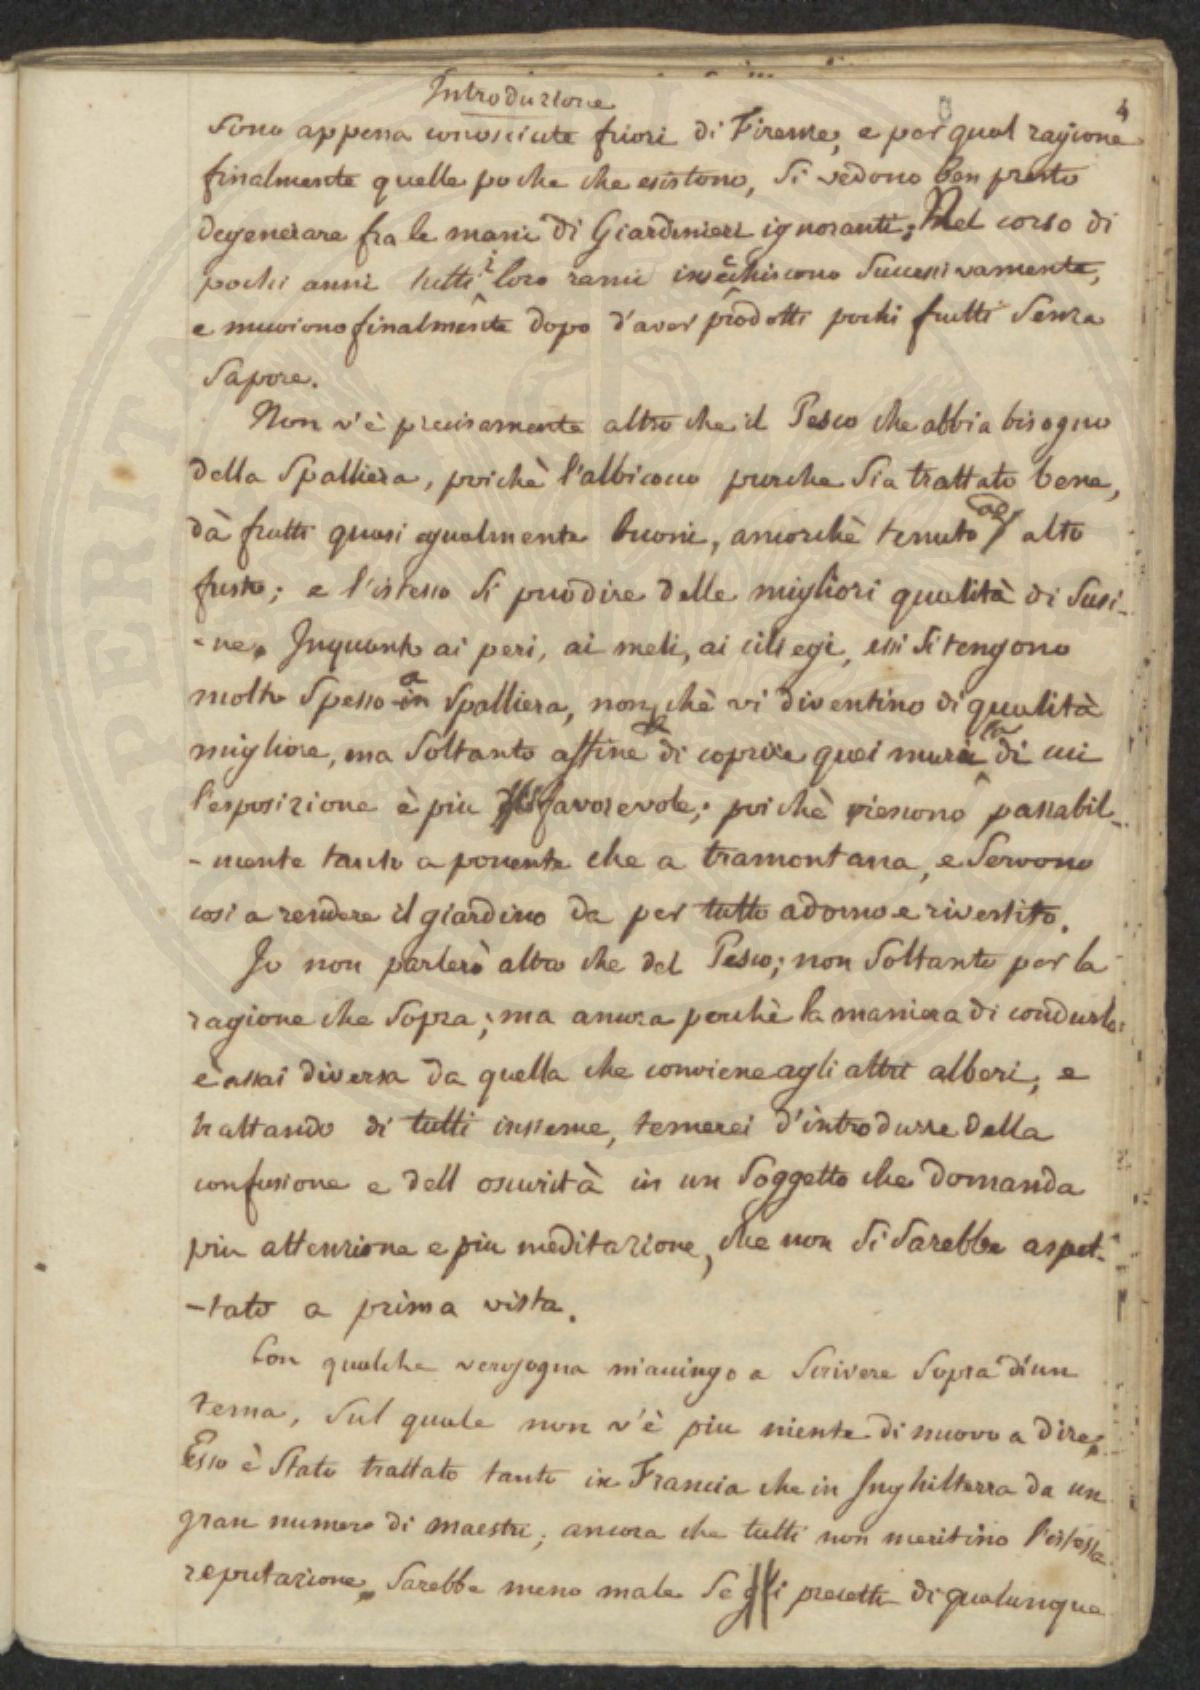 Introduzione
4
sono appena conosciute fuori di Firenze, e per qual ragione
finalmente quelle poche che esistono, si vedono ben presto
degenerare fra le mani di Giardinieri ignoranti; Nel corso di
pochi anni tutti i loro rami insechiscono successivamente,
e muoiono finalmente dopo d'aver prodotti pochi frutti senza
sapore.
Non v'è precisamente altro che il Pesco che abbia bisogno
della Spalliera, poichè l'albicocco purche sia trattato bene,
dà frutti quasi egualmente buoni, ancorchè tenuto ad alto
fusto; e l'istesso si puo dire delle migliori qualità di Susi-
-ne. Inquanto ai peri, ai meli, ai ciliegi, essi si tengono
molto spesso a Spalliera, non chè vi diventino di qualità
migliore, ma soltanto affine di coprire quei muri la di cui
l'esposizione è piu favorevole; poichè riescono passabil-
-mente tanto a ponente che a tramontana, e servono
cosi a rendere il giardino da per tutto adorno e rivestito.
Io non parlerò altro che del Pesco; non soltanto per la
ragione che sopra; ma ancora perchè la maniera di condurlo
è assai diversa da quella che conviene agli altri alberi; e
trattando di tutti insieme, temerei d'introdurre della
confusione e dell oscurità in un soggetto che domanda
piu attenzione e piu meditazione, che non si sarebbe aspet-
-tato a prima vista.
Con qualche vergogna m'accingo a scrivere sopra d'un
tema, sul quale non v'è piu niente di nuovo a dire.
Esso è stato trattato tanto in Francia che in Inghilterra da un
gran numero di maestri; ancora che tutti non meritino l'istessa
reputazione. Sarebbe meno male se i precetti di qualunque
SPERITAS